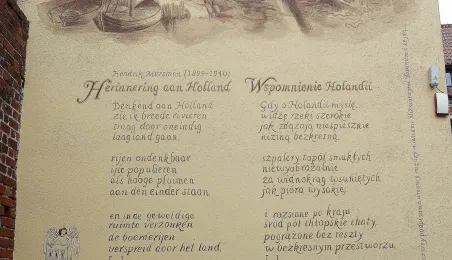 Hendrik Marsman (1899-1940)
Herinnering aan Holland
Denkend aan Holland
zie ik breede rivieren
traag door oneindig
laagland gaan,
rijen ondenkbaar
ijle populieren
als hooge pluimen
aan den einder staan,
en in de geweldige
ruimte verzonken
de boerderijen
verspreid door het land,
Wspomnienie Holandii
Gdy o Holandii myślę,
widzę rzeki szerokie
jak zdążają niespiesznie
niziną bezkresną,
szpalery topól smukłych
niewyobrażalnie
za widnokrąg wsuniętych
jak pióra wysokie;
i rozsiane po kraju
śród pól chłopskie chaty
pogrążone bez reszty
w bezkresnym przestworzu,